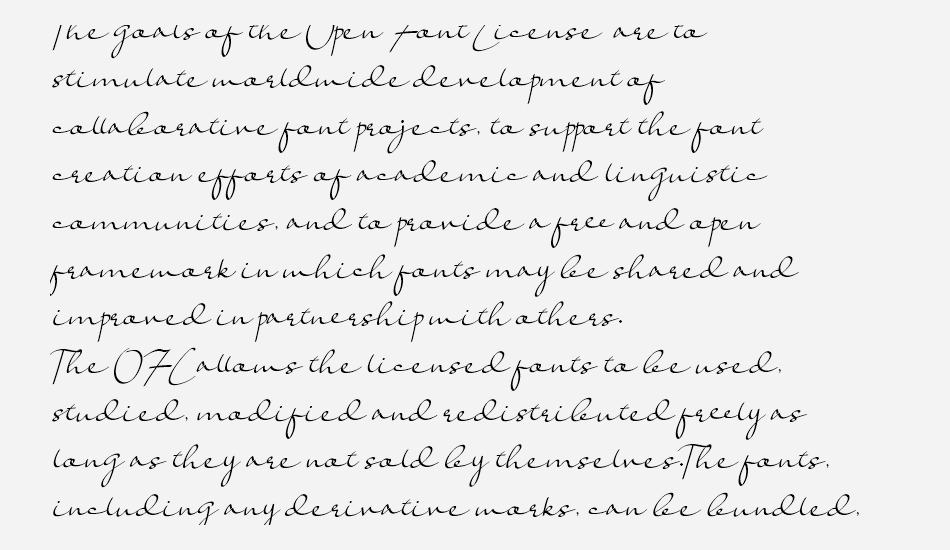 The goals of the Open Font License are to
stimulate worldwide development of
collaborative font projects, to support the font
creation efforts of academic and linguistic
communities, and to provide a free and open
framework in which fonts may be shared and
improved in partnership with others.
The OFL allows the licensed fonts to be used,
studied, modified and redistributed freely as
long as they are not sold by themselves.The fonts,
including any derivative works, can be bundled,